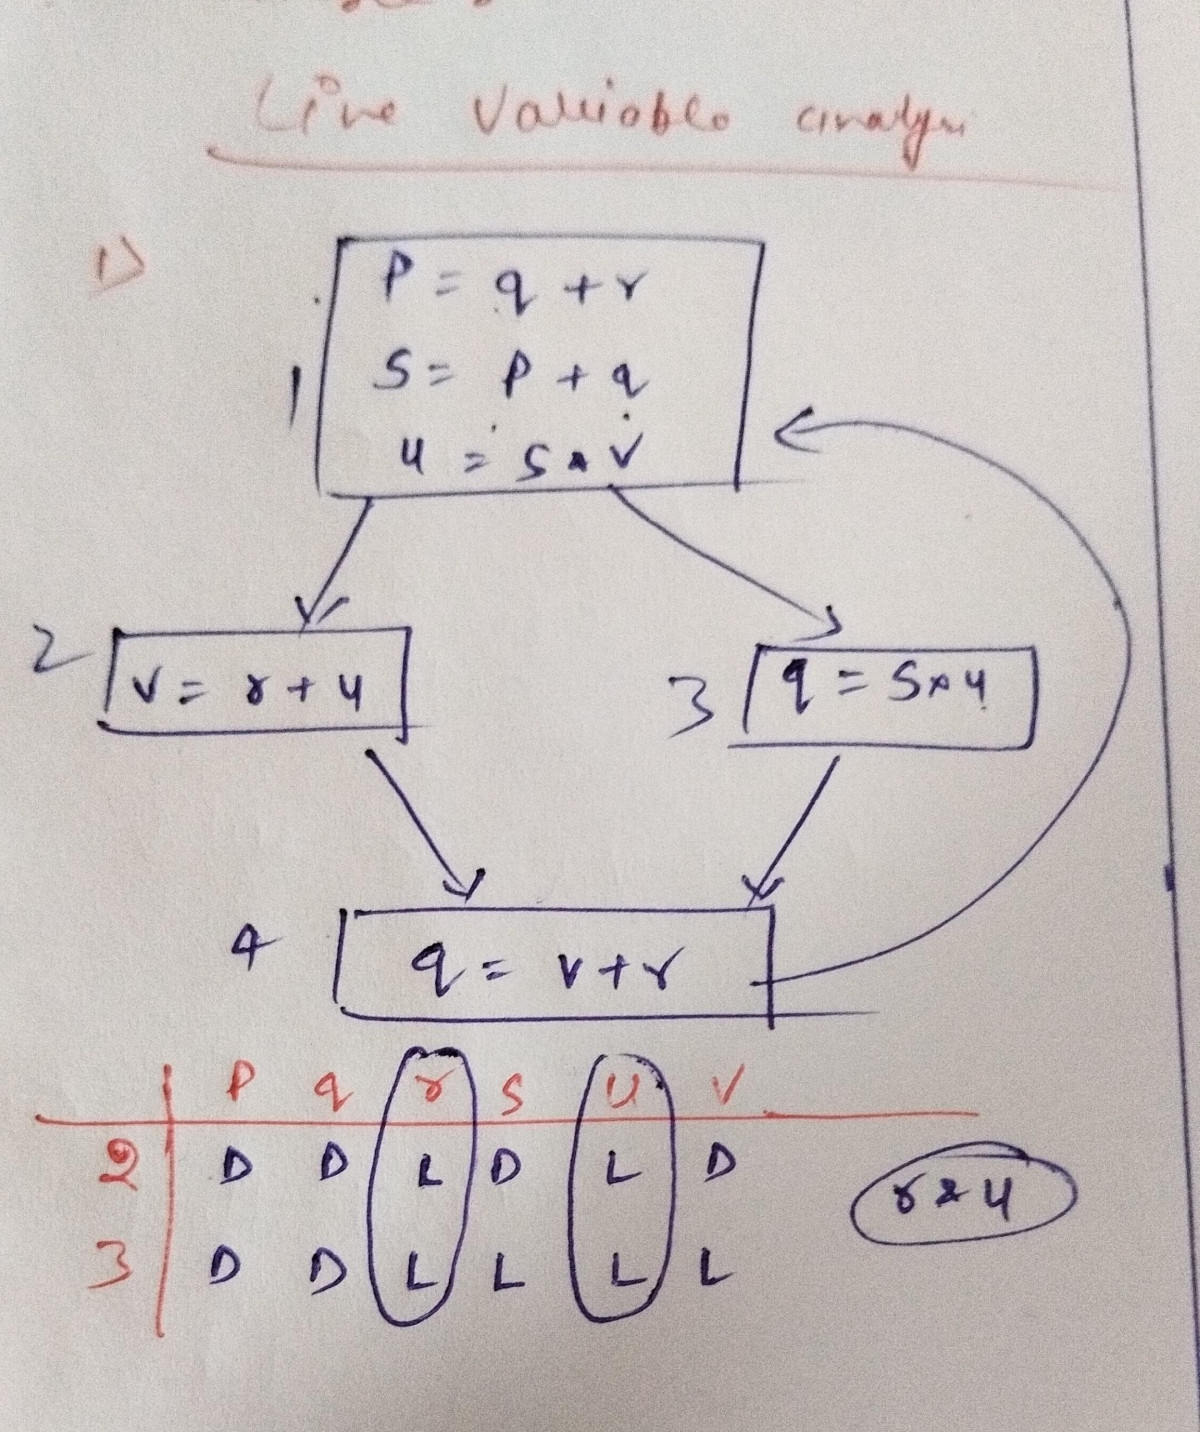 Live Variable analysi
1)
P = q + r
S = P + q
u = S * v
1
2
v = r + u
3
q = S * u
4
q = v + r
P q r S U V
2 D D L D L D
3 D D L L L L
r & u